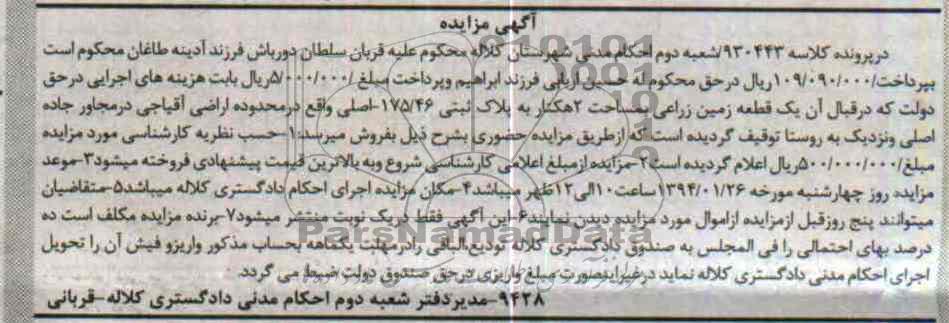 آگهی مزایده
درپرونده کلاسه ۹۳۰۴۴۳/شعبه دوم احکام مدنی شهرستان کلاله محکوم علیه قربان سلطان دورباش فرزند آدینه طاغان محکوم است
بپرداخت/۱۰۹/۰۹۰/۰۰۰ریال درحق محکوم له حسین اربابی فرزند ابراهیم وپرداخت مبلغ/۵/۰۰۰/۰۰۰ریال بابت هزینه های اجرایی درحق
دولت که درقبال آن یک قطعه زمین زراعی بمساحت ۲هکتار به پلاک ثبتی ۱۷۵/۴۶-اصلی واقع درمحدوده اراضی آقباجی درمجاور جاده
اصلی ونزدیک به روستا توقیف گردیده است که ازطریق مزایده حضوری بشرح ذیل بفروش میرسد:۱-حسب نظریه کارشناسی مورد مزایده
مبلغ/۵۰۰/۰۰۰/۰۰۰ریال اعلام گردیده است۲-مزایده ازمبلغ اعلامی کارشناسی شروع وبه بالاترین قیمت پیشنهادی فروخته میشود۳-موعد
مزایده روز چهارشنبه مورخه ۱۳۹۴/۰۱/۲۶ساعت۱۰الی۱۲ظهر میباشد۴-مکان مزایده اجرای احکام دادگستری کلاله میباشد۵-متقاضیان
میتوانند پنج روزقبل ازمزایده ازاموال مورد مزایده دیدن نمایند۶-این آگهی فقط دریک نوبت منتشر میشود۷-برنده مزایده مکلف است ده
درصد بهای احتمالی را فی المجلس به صندوق دادگستری کلاله تودیع،الباقی رادرمهلت یکماهه بحساب مذکور واریزو فیش آن را تحویل
اجرای احکام مدنی دادگستری کلاله نماید درغیراینصورت مبلغ واریزی درحق صندوق دولت ضبط می گردد.
۹۴۲۸-مدیردفتر شعبه دوم احکام مدنی دادگستری کلاله-قربانی
ParsNamadData